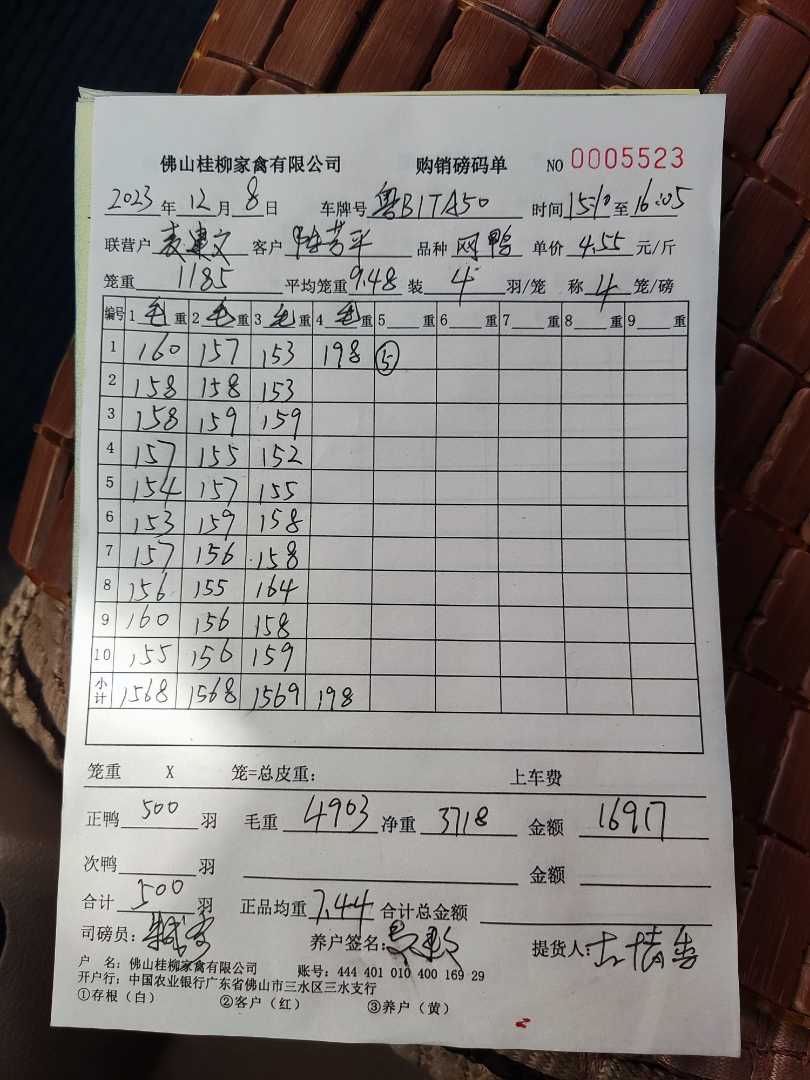 佛山桂柳家禽有限公司 购销磅码单 NO 0005523
2023年12月8日 车牌号 粤B1TA50 时间 15:10至16:05
联营户 客户 品种 网鸭 单价 4.55 元/斤
笼重 1185 平均笼重 9.48 装 4 羽/笼 称 4 笼/磅
编号 1 毛 重 2 毛 重 3 毛 重 4 毛 重 5 重 6 重 7 重 8 重 9 重
1 160 157 153 198 ⑤
2 158 158 153
3 158 159 159
4 157 155 152
5 154 157 155
6 153 159 158
7 157 156 158
8 156 155 164
9 160 156 158
10 155 156 159
小计 1568 1568 1569 198
笼重 X 笼=总皮重: 上车费
正鸭 500 羽 毛重 4903 净重 3718 金额 16917
次鸭 羽 金额
合计 500 羽 正品均重 7.44 合计总金额
司磅员: 养户签名: 提货人:
户 名: 佛山桂柳家禽有限公司 账号: 444 401 010 400 169 29
开户行: 中国农业银行广东省佛山市三水区三水支行
①存根（白） ②客户（红） ③养户（黄）